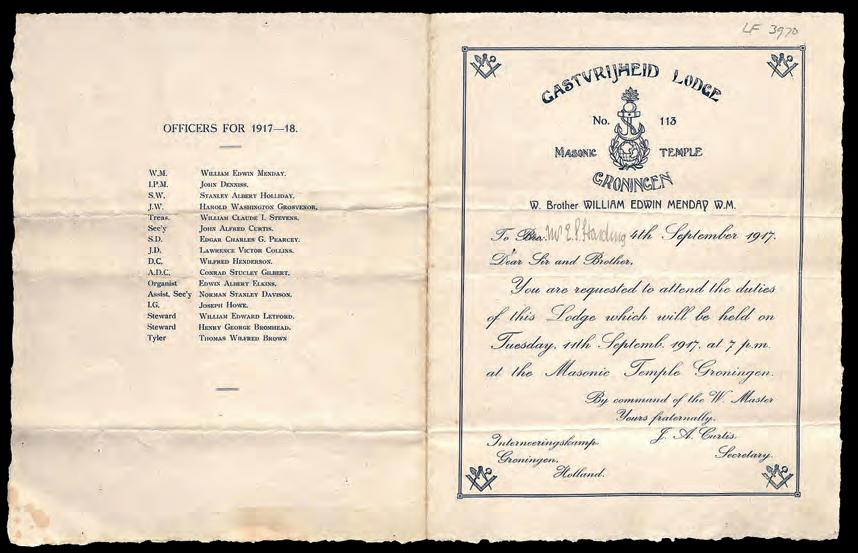 OFFICERS FOR 1917—18.
W.M. WILLIAM EDWIN MENDAY.
I.P.M. JOHN DENNISS.
S.W. STANLEY ALBERT HOLLIDAY.
J.W. HAROLD WASHINGTON GROSVENOR.
Treas. WILLIAM CLAUDE I. STEVENS.
Sec'y JOHN ALFRED CURTIS.
S.D. EDGAR CHARLES G. PEARCEY.
J.D. LAWRENCE VICTOR COLLINS.
D.C. WILFRED HENDERSON.
A.D.C. CONRAD STUCLEY GILBERT.
Organist EDWIN ALBERT ELKINS.
Assist. Sec'y NORMAN STANLEY DAVISON.
I.G. JOSEPH HOWE.
Steward WILLIAM EDWARD LETFORD.
Steward HENRY GEORGE BROMHEAD.
Tyler THOMAS WILFRED BROWN
LF 3970
GASTVRIJHEID LODGE
No. 113
MASONIC TEMPLE
GRONINGEN
W. Brother WILLIAM EDWIN MENDAY W.M.
To Bro. Mr E.P. Harding 4th September 1917.
Dear Sir and Brother,
You are requested to attend the duties
of this Lodge which will be held on
Tuesday, 11th Septemb. 1917, at 7 p.m.
at the Masonic Temple Groningen.
By command of the W. Master
Yours fraternally,
J. A. Curtis.
Secretary.
Interneeringskamp.
Groningen.
Holland.